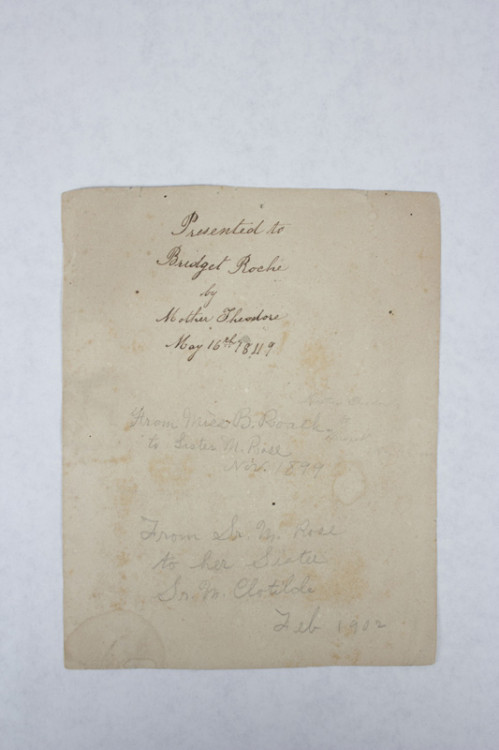 Presented to
Bridget Roche
by
Mother Theodore
May 16th 1849
From Miss B. Roach
to Sister M. Rose
Nov. 1879
From Sr. M. Rose
to her Sister
Sr. M. Clotilde
Feb 1902